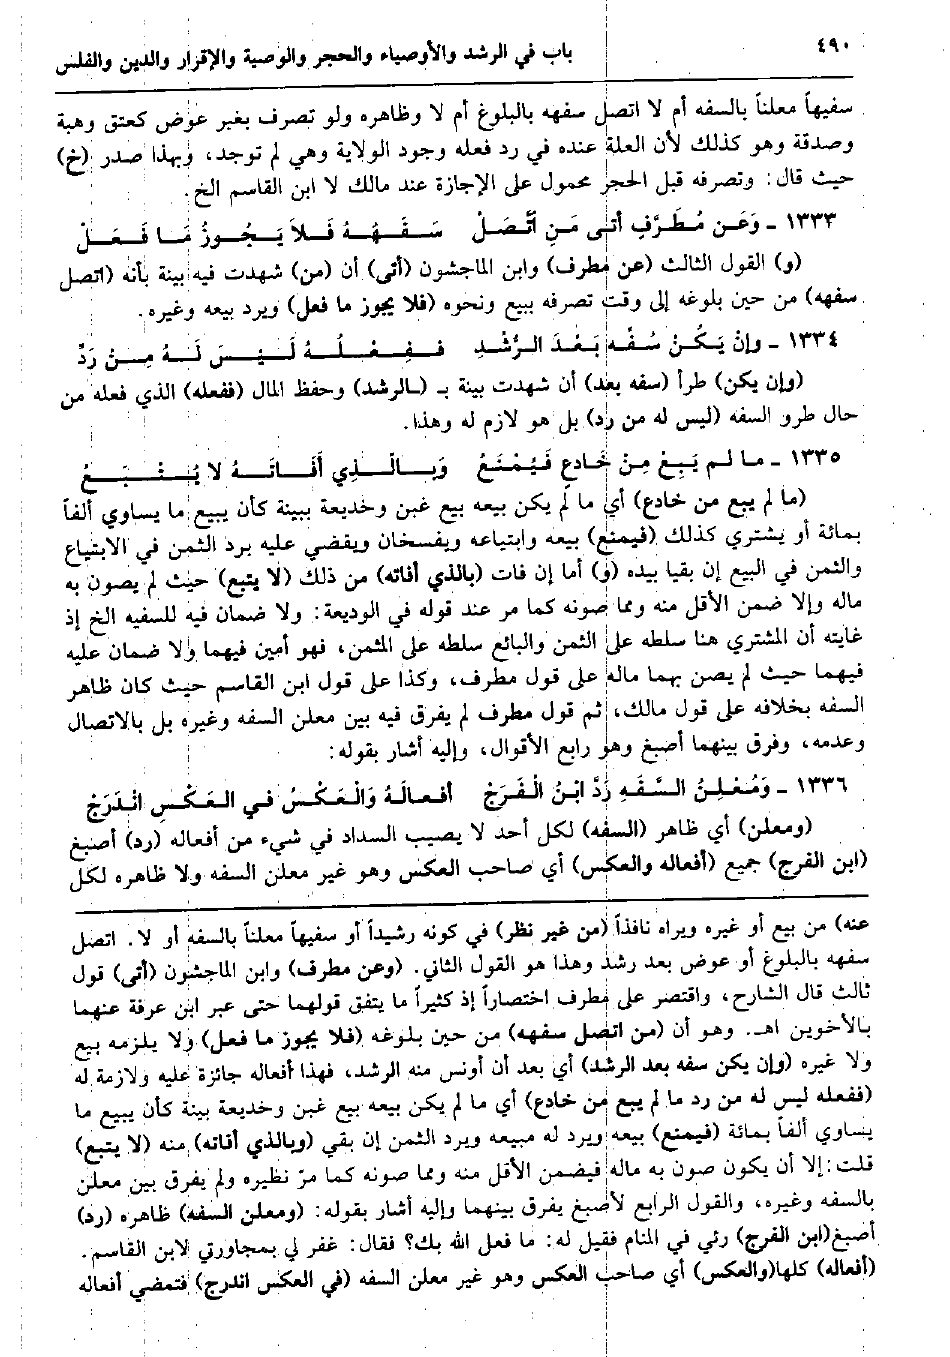 ٤٩٠
باب في الرشد والأوصياء والحجر والوصية والإقرار والدين والفلس
سفيهاً معلناً بالسفه أم لا اتصل سفهه بالبلوغ أم لا وظاهره ولو تصرف بغير عوض كعتق وهبة
وصدقة وهو كذلك لأن العلة عنده في رد فعله وجود الولاية وهي لم توجد، وبهذا صدر (خ)
حيث قال: وتصرفه قبل الحجر محمول على الإجازة عند مالك لا ابن القاسم الخ.
١٣٣٣ ـ وَعَن مُطَرَّفِ أتى مَنِ اتَّصَلْ سَفَهُهُ فَلاَ يَجُوزُ مَا فَعَلْ
(و) القول الثالث (عن مطرف) وابن الماجشون (أتى) أن (من) شهدت فيه بينة بأنه (اتصل
سفهه) من حين بلوغه إلى وقت تصرفه ببيع ونحوه (فلا يجوز ما فعل) ويرد بيعه وغيره.
١٣٣٤ ـ وإنْ يَكُنْ سُفِّهَ بَعْدَ الرُّشْدِ فَفِعْلُهُ لَيْسَ لَهُ مِنْ رَدِّ
(وإن يكن) طرأ (سفه بعد) أن شهدت بينة بـ (ـالرشد) وحفظ المال (ففعله) الذي فعله من
حال طرو السفه (ليس له من رد) بل هو لازم له وهذا.
١٣٣٥ ـ ما لم يَبِعْ مِنْ خَادِعٍ فَيُمْنَعُ وَبِالَّذِي أَفَاتَهُ لا يُتْبَعُ
(ما لم يبع من خادع) أي ما لم يكن بيعه بيع غبن وخديعة ببينة كأن يبيع ما يساوي ألفاً
بمائة أو يشتري كذلك (فيمنع) بيعه وابتياعه ويفسخان ويقضي عليه برد الثمن في الابتياع
والثمن في البيع إن بقيا بيده (و) أما إن فات (بالذي أفاته) من ذلك (لا يتبع) حيث لم يصون به
ماله وإلا ضمن الأقل منه ومما صونه كما مر عند قوله في الوديعة: ولا ضمان فيه للسفيه الخ إذ
غايته أن المشتري هنا سلطه على الثمن والبائع سلطه على المثمن، فهو أمين فيهما ولا ضمان عليه
فيهما حيث لم يصن بهما ماله على قول مطرف، وكذا على قول ابن القاسم حيث كان ظاهر
السفه بخلافه على قول مالك، ثم قول مطرف لم يفرق فيه بين معلن السفه وغيره بل بالاتصال
وعدمه، وفرق بينهما أصبغ وهو رابع الأقوال، وإليه أشار بقوله:
١٣٣٦ ـ وَمُعْلِنُ السَّفَهِ رَدَّ ابْنُ الْفَرَجْ أفعالَهُ وَالْعَكْسُ في العَكْسِ انْدَرَجْ
(ومعلن) أي ظاهر (السفه) لكل أحد لا يصيب السداد في شيء من أفعاله (رد) أصبغ
(ابن الفرج) جميع (أفعاله والعكس) أي صاحب العكس وهو غير معلن السفه ولا ظاهره لكل
عنه) من بيع أو غيره ويراه نافذاً (من غير نظر) في كونه رشيداً أو سفيهاً معلناً بالسفه أو لا. اتصل
سفهه بالبلوغ أو عوض بعد رشد وهذا هو القول الثاني. (وعن مطرف) وابن الماجشون (أتى) قول
ثالث قال الشارح، واقتصر على مطرف اختصاراً إذ كثيراً ما يتفق قولهما حتى عبر ابن عرفة عنهما
بالأخوين اهـ. وهو أن (من اتصل سفهه) من حين بلوغه (فلا يجوز ما فعل) ولا يلزمه بيع
ولا غيره (وإن يكن سفه بعد الرشد) أي بعد أن أونس منه الرشد، فهذا أفعاله جائزة عليه ولازمة له
(ففعله ليس له من رد ما لم يبع من خادع) أي ما لم يكن بيعه بيع غبن وخديعة بينة كأن يبيع ما
يساوي ألفاً بمائة (فيمنع) بيعه ويرد له مبيعه ويرد الثمن إن بقي (وبالذي أفاته) منه (لا يتبع)
قلت: إلا أن يكون صون به ماله فيضمن الأقل منه ومما صونه كما مرّ نظيره ولم يفرق بين معلن
بالسفه وغيره، والقول الرابع لأصبغ يفرق بينهما وإليه أشار بقوله: (ومعلن السفه) ظاهره (رد)
أصبغ (ابن الفرج) رئي في المنام فقيل له: ما فعل الله بك؟ فقال: غفر لي بمجاورتي لابن القاسم.
(أفعاله) كلها (والعكس) أي صاحب العكس وهو غير معلن السفه (في العكس اندرج) فتمضي أفعاله